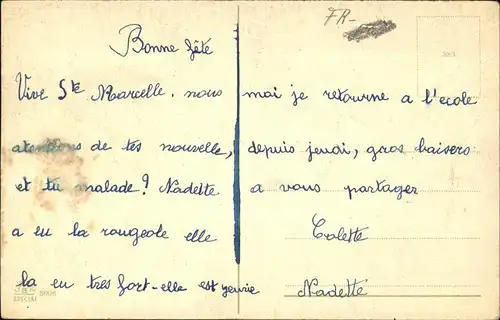 FR-
Bonne fête
Vive Ste Marcelle. nous
attendons de tes nouvelle,
et tu malade? Nadette
a eu la rougeole elle
la eu tres fort-elle est
mai je retourne a l'ecole
depuis jeudi, gros baisers
a vous partager
Colette
Nadette
SPECIAL